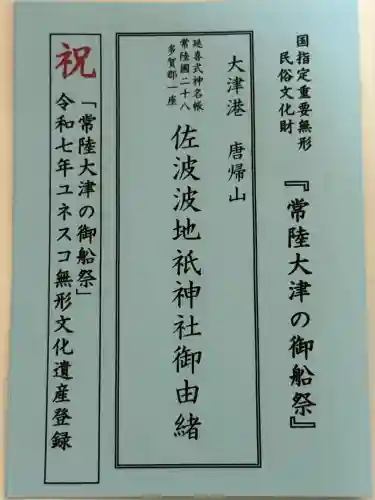 国指定重要無形
民俗文化財
『常陸大津の御船祭』
大津港 唐帰山
延喜式神名帳
常陸國二十八
多賀郡一座
佐波波地祇神社御由緒
祝
「常陸大津の御船祭」
令和七年ユネスコ無形文化遺産登録